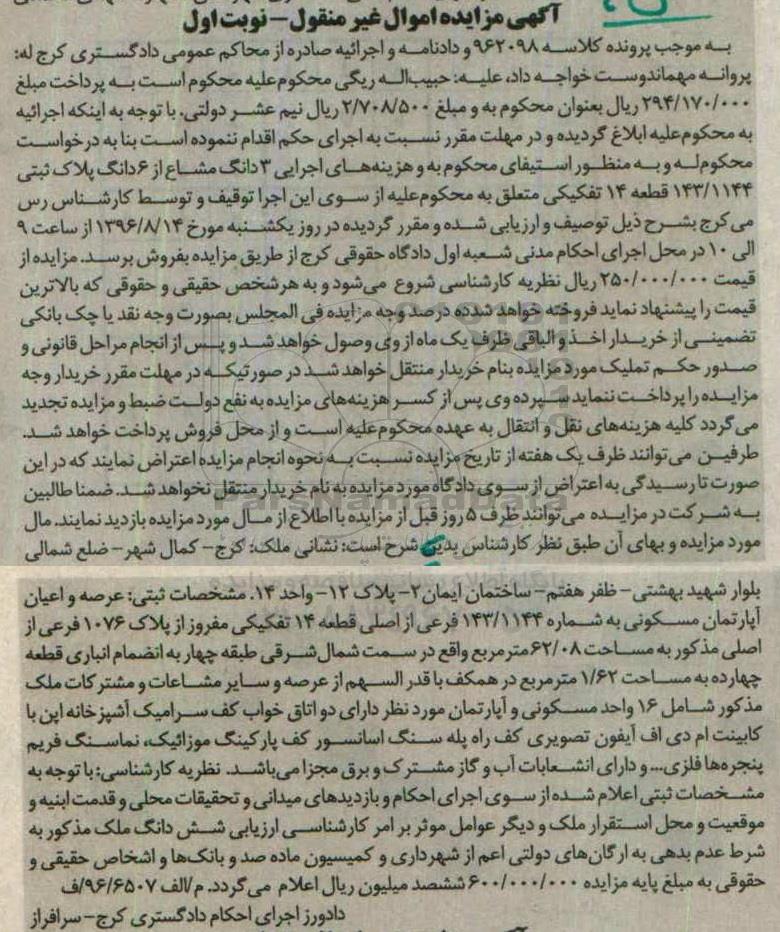 آگهی مزایده اموال غیر منقول – نوبت اول
به موجب پرونده کلاسه ۹۶۲۰۹۸ و دادنامه و اجرائیه صادره از محاکم عمومی دادگستری کرج له:
پروانه مهماندوست خواجه داد، علیه: حبیب‌اله ریگی محکوم‌علیه محکوم است به پرداخت مبلغ
۲۹۴/۱۷۰/۰۰۰ ریال بعنوان محکوم به و مبلغ ۲/۷۰۸/۵۰۰ ریال نیم عشر دولتی. با توجه به اینکه اجرائیه
به محکوم‌علیه ابلاغ گردیده و در مهلت مقرر نسبت به اجرای حکم اقدام ننموده است بنا به درخواست
محکوم‌له و به منظور استیفای محکوم به و هزینه‌های اجرایی ۳ دانگ مشاع از ۶ دانگ پلاک ثبتی
۱۴۳/۱۱۴۴ قطعه ۱۴ تفکیکی متعلق به محکوم‌علیه از سوی این اجرا توقیف و توسط کارشناس رس
می کرج بشرح ذیل توصیف و ارزیابی شده و مقرر گردیده در روز یکشنبه مورخ ۱۳۹۶/۸/۱۴ از ساعت ۹
الی ۱۰ در محل اجرای احکام مدنی شعبه اول دادگاه حقوقی کرج از طریق مزایده بفروش برسد. مزایده از
قیمت ۲۵۰/۰۰۰/۰۰۰ ریال نظریه کارشناسی شروع می‌شود و به هرشخص حقیقی و حقوقی که بالاترین
قیمت را پیشنهاد نماید فروخته خواهد شد ده درصد وجه مزایده فی المجلس بصورت وجه نقد یا چک بانکی
تضمینی از خریدار اخذ و الباقی ظرف یک ماه از وی وصول خواهد شد و پس از انجام مراحل قانونی و
صدور حکم تملیک مورد مزایده بنام خریدار منتقل خواهد شد در صورتیکه در مهلت مقرر خریدار وجه
مزایده را پرداخت ننماید سپرده وی پس از کسر هزینه‌های مزایده به نفع دولت ضبط و مزایده تجدید
می گردد کلیه هزینه‌های نقل و انتقال به عهده محکوم‌علیه است و از محل فروش پرداخت خواهد شد.
طرفین می‌توانند ظرف یک هفته از تاریخ مزایده نسبت به نحوه انجام مزایده اعتراض نمایند که در این
صورت تا رسیدگی به اعتراض از سوی دادگاه مورد مزایده به نام خریدار منتقل نخواهد شد. ضمنا طالبین
به شرکت در مزایده می‌توانند ظرف ۵ روز قبل از مزایده با اطلاع از مال مورد مزایده بازدید نمایند. مال
مورد مزایده و بهای آن طبق نظر کارشناس بدین شرح است: نشانی ملک: کرج– کمال شهر– ضلع شمالی
بلوار شهید بهشتی– ظفر هفتم– ساختمان ایمان۲– پلاک ۱۲– واحد ۱۴. مشخصات ثبتی: عرصه و اعیان
آپارتمان مسکونی به شماره ۱۴۳/۱۱۴۴ فرعی از اصلی قطعه ۱۴ تفکیکی مفروز از پلاک ۱۰۷۶ فرعی از
اصلی مذکور به مساحت ۶۲/۰۸ مترمربع واقع در سمت شمال شرقی طبقه چهار به انضمام انباری قطعه
چهارده به مساحت ۱/۶۲ مترمربع در همکف با قدر السهم از عرصه و سایر مشاعات و مشترکات ملک
مذکور شامل ۱۶ واحد مسکونی و آپارتمان مورد نظر دارای دو اتاق خواب کف سرامیک آشپزخانه اپن با
کابینت ام دی اف آیفون تصویری کف راه پله سنگ اسانسور کف پارکینگ موزائیک، نماسنگ فریم
پنجره‌ها فلزی... و دارای انشعابات آب و گاز مشترک و برق مجزا می‌باشد. نظریه کارشناسی: با توجه به
مشخصات ثبتی اعلام شده از سوی اجرای احکام و بازدیدهای میدانی و تحقیقات محلی و قدمت ابنیه و
موقعیت و محل استقرار ملک و دیگر عوامل موثر بر امر کارشناسی ارزیابی شش دانگ ملک مذکور به
شرط عدم بدهی به ارگان‌های دولتی اعم از شهرداری و کمیسیون ماده صد و بانک‌ها و اشخاص حقیقی و
حقوقی به مبلغ پایه مزایده ۶۰۰/۰۰۰/۰۰۰ ششصد میلیون ریال اعلام می گردد. م/الف ۹۶/۶۵۰۷/ف
دادورز اجرای احکام دادگستری کرج– سرافراز